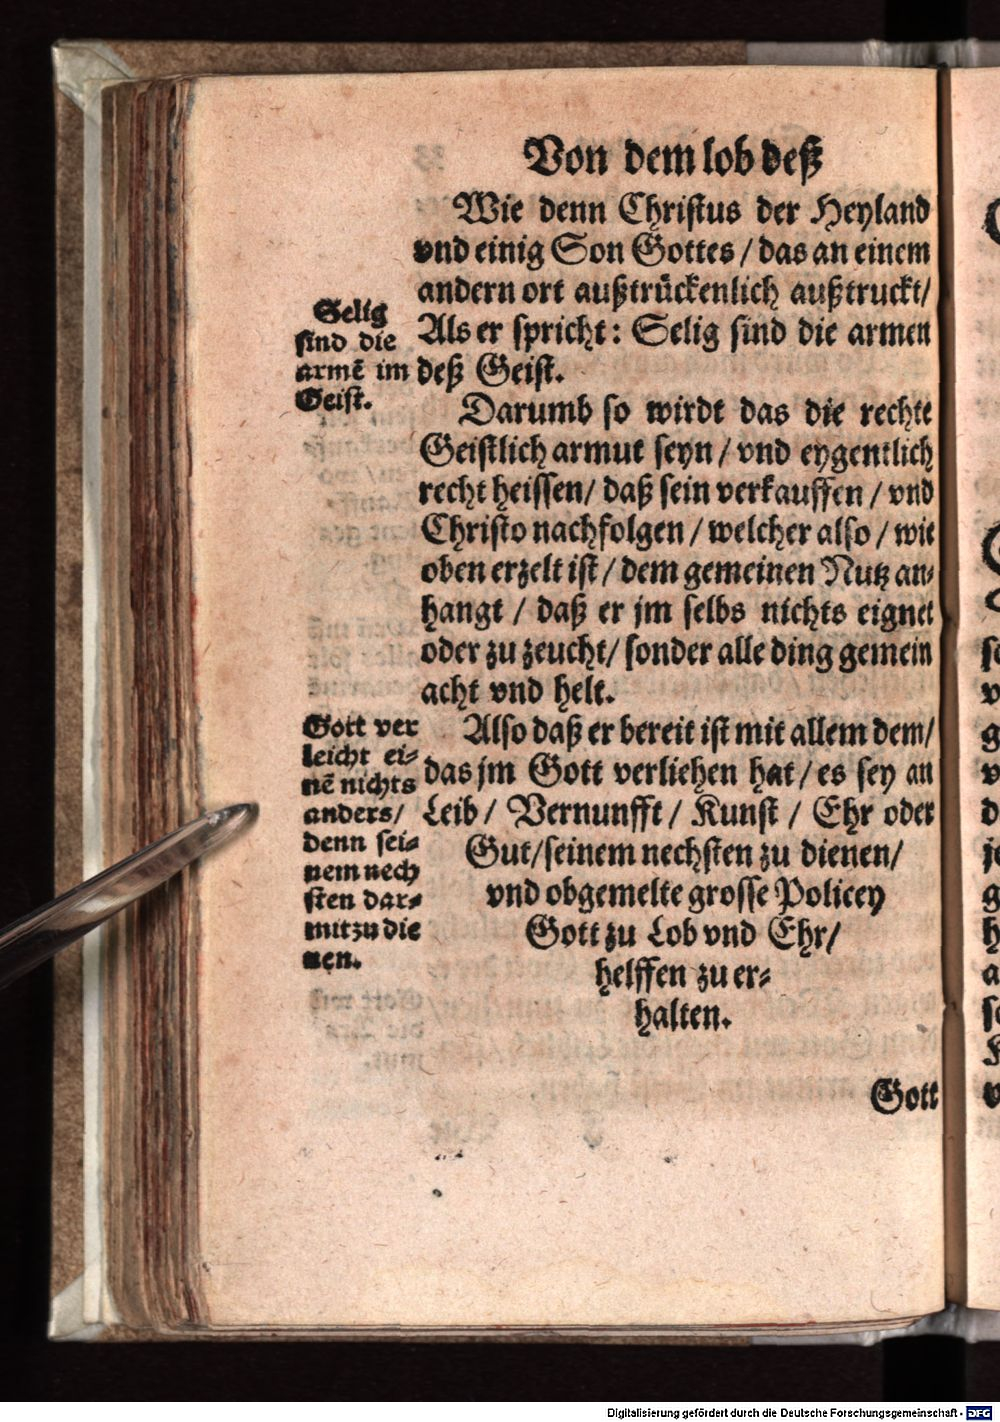 Von dem lob deß
Wie denn Christus der Heyland
vnd einig Son Gottes / das an einem
andern ort außtrückenlich außtruckt /
Als er spricht: Selig sind die armen
deß Geist.
Selig
sind die
armẽ im
Geist.
Darumb so wirdt das die rechte
Geistlich armut seyn / vnd eygentlich
recht heissen / daß sein verkauffen / vnd
Christo nachfolgen / welcher also / wie
oben erzelt ist / dem gemeinen Nutz an-
hangt / daß er jm selbs nichts eignet
oder zu zeucht / sonder alle ding gemein
acht vnd helt.
Also daß er bereit ist mit allem dem /
das jm Gott verliehen hat / es sey an
Leib / Vernunfft / Kunst / Ehr oder
Gut / seinem nechsten zu dienen /
vnd obgemelte grosse Policey
Gott zu Lob vnd Ehr /
helffen zu er-
halten.
Gott ver
leicht ei-
nẽ nichts
anders /
denn sei-
nem nech
sten dar-
mit zu die
nen.
Gott
Digitalisierung gefördert durch die Deutsche Forschungsgemeinschaft - DFG